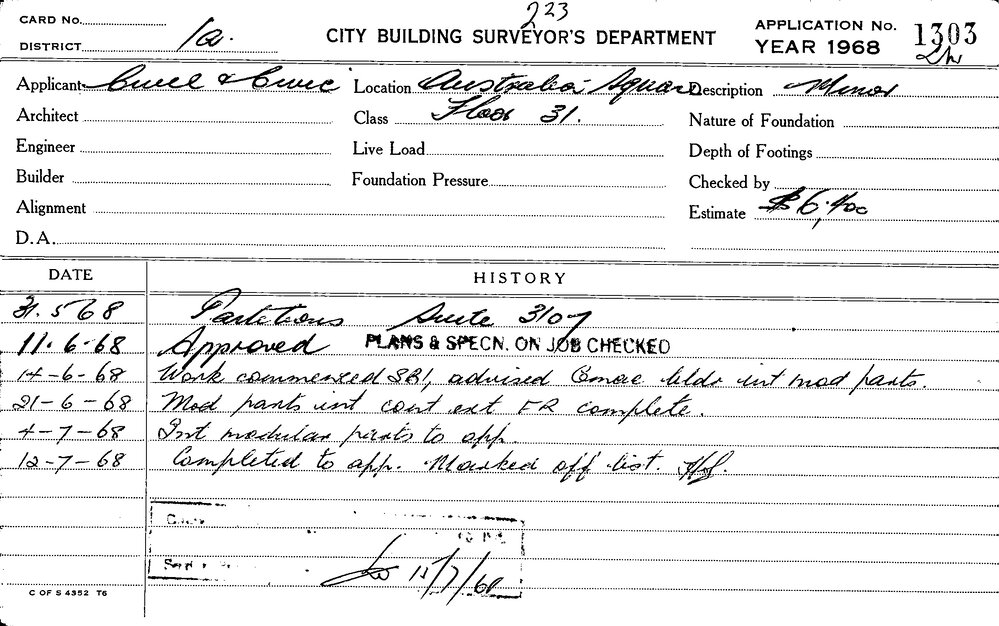 223
CARD No.
DISTRICT 1a.
CITY BUILDING SURVEYOR'S DEPARTMENT
APPLICATION No. 1303
YEAR 1968
Applicant Civil & Civic Location Australia Square Description Minor
Architect Class Floor 31. Nature of Foundation
Engineer Live Load Depth of Footings
Builder Foundation Pressure Checked by
Alignment Estimate $6,400
D.A.
DATE HISTORY
31.5.68 Partitions Suite 3107
11.6.68 Approved PLANS & SPECN. ON JOB CHECKED
14-6-68 Work commenced SBI, advised bldr int mod parts.
21-6-68 Mod parts int cont ext FR complete.
4-7-68 Int modular parts to app.
12-7-68 Completed to app. Marked off list.
15/7/68
C OF S 4352 T6